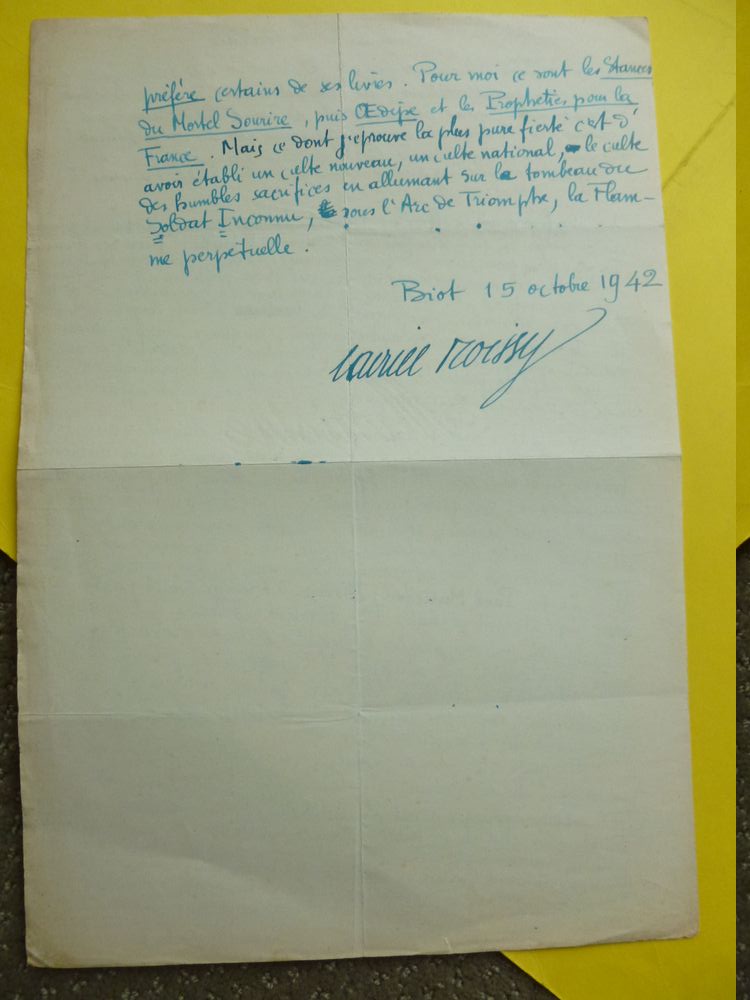 préfère certains de ses livres. Pour moi ce sont les Stances
du Mortel Sourire, puis Œdipe et les Prophéties pour la
France. Mais ce dont j'éprouve la plus pure fierté c'est d'
avoir établi un culte nouveau, un culte national, le culte
des humbles sacrifices en allumant sur le tombeau du
Soldat Inconnu, sous l'Arc de Triomphe, la Flam-
me perpétuelle.
Biot 15 octobre 1942
Gabriel Boissy